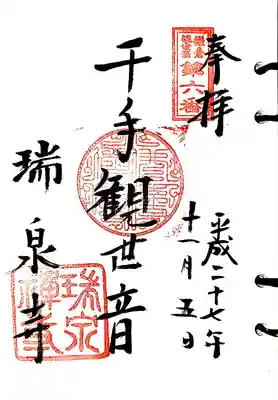 奉拝
鎌倉
観音霊場
第六番
平成二十七年
十一月五日
千手観世音
瑞泉寺
瑞泉
禅寺